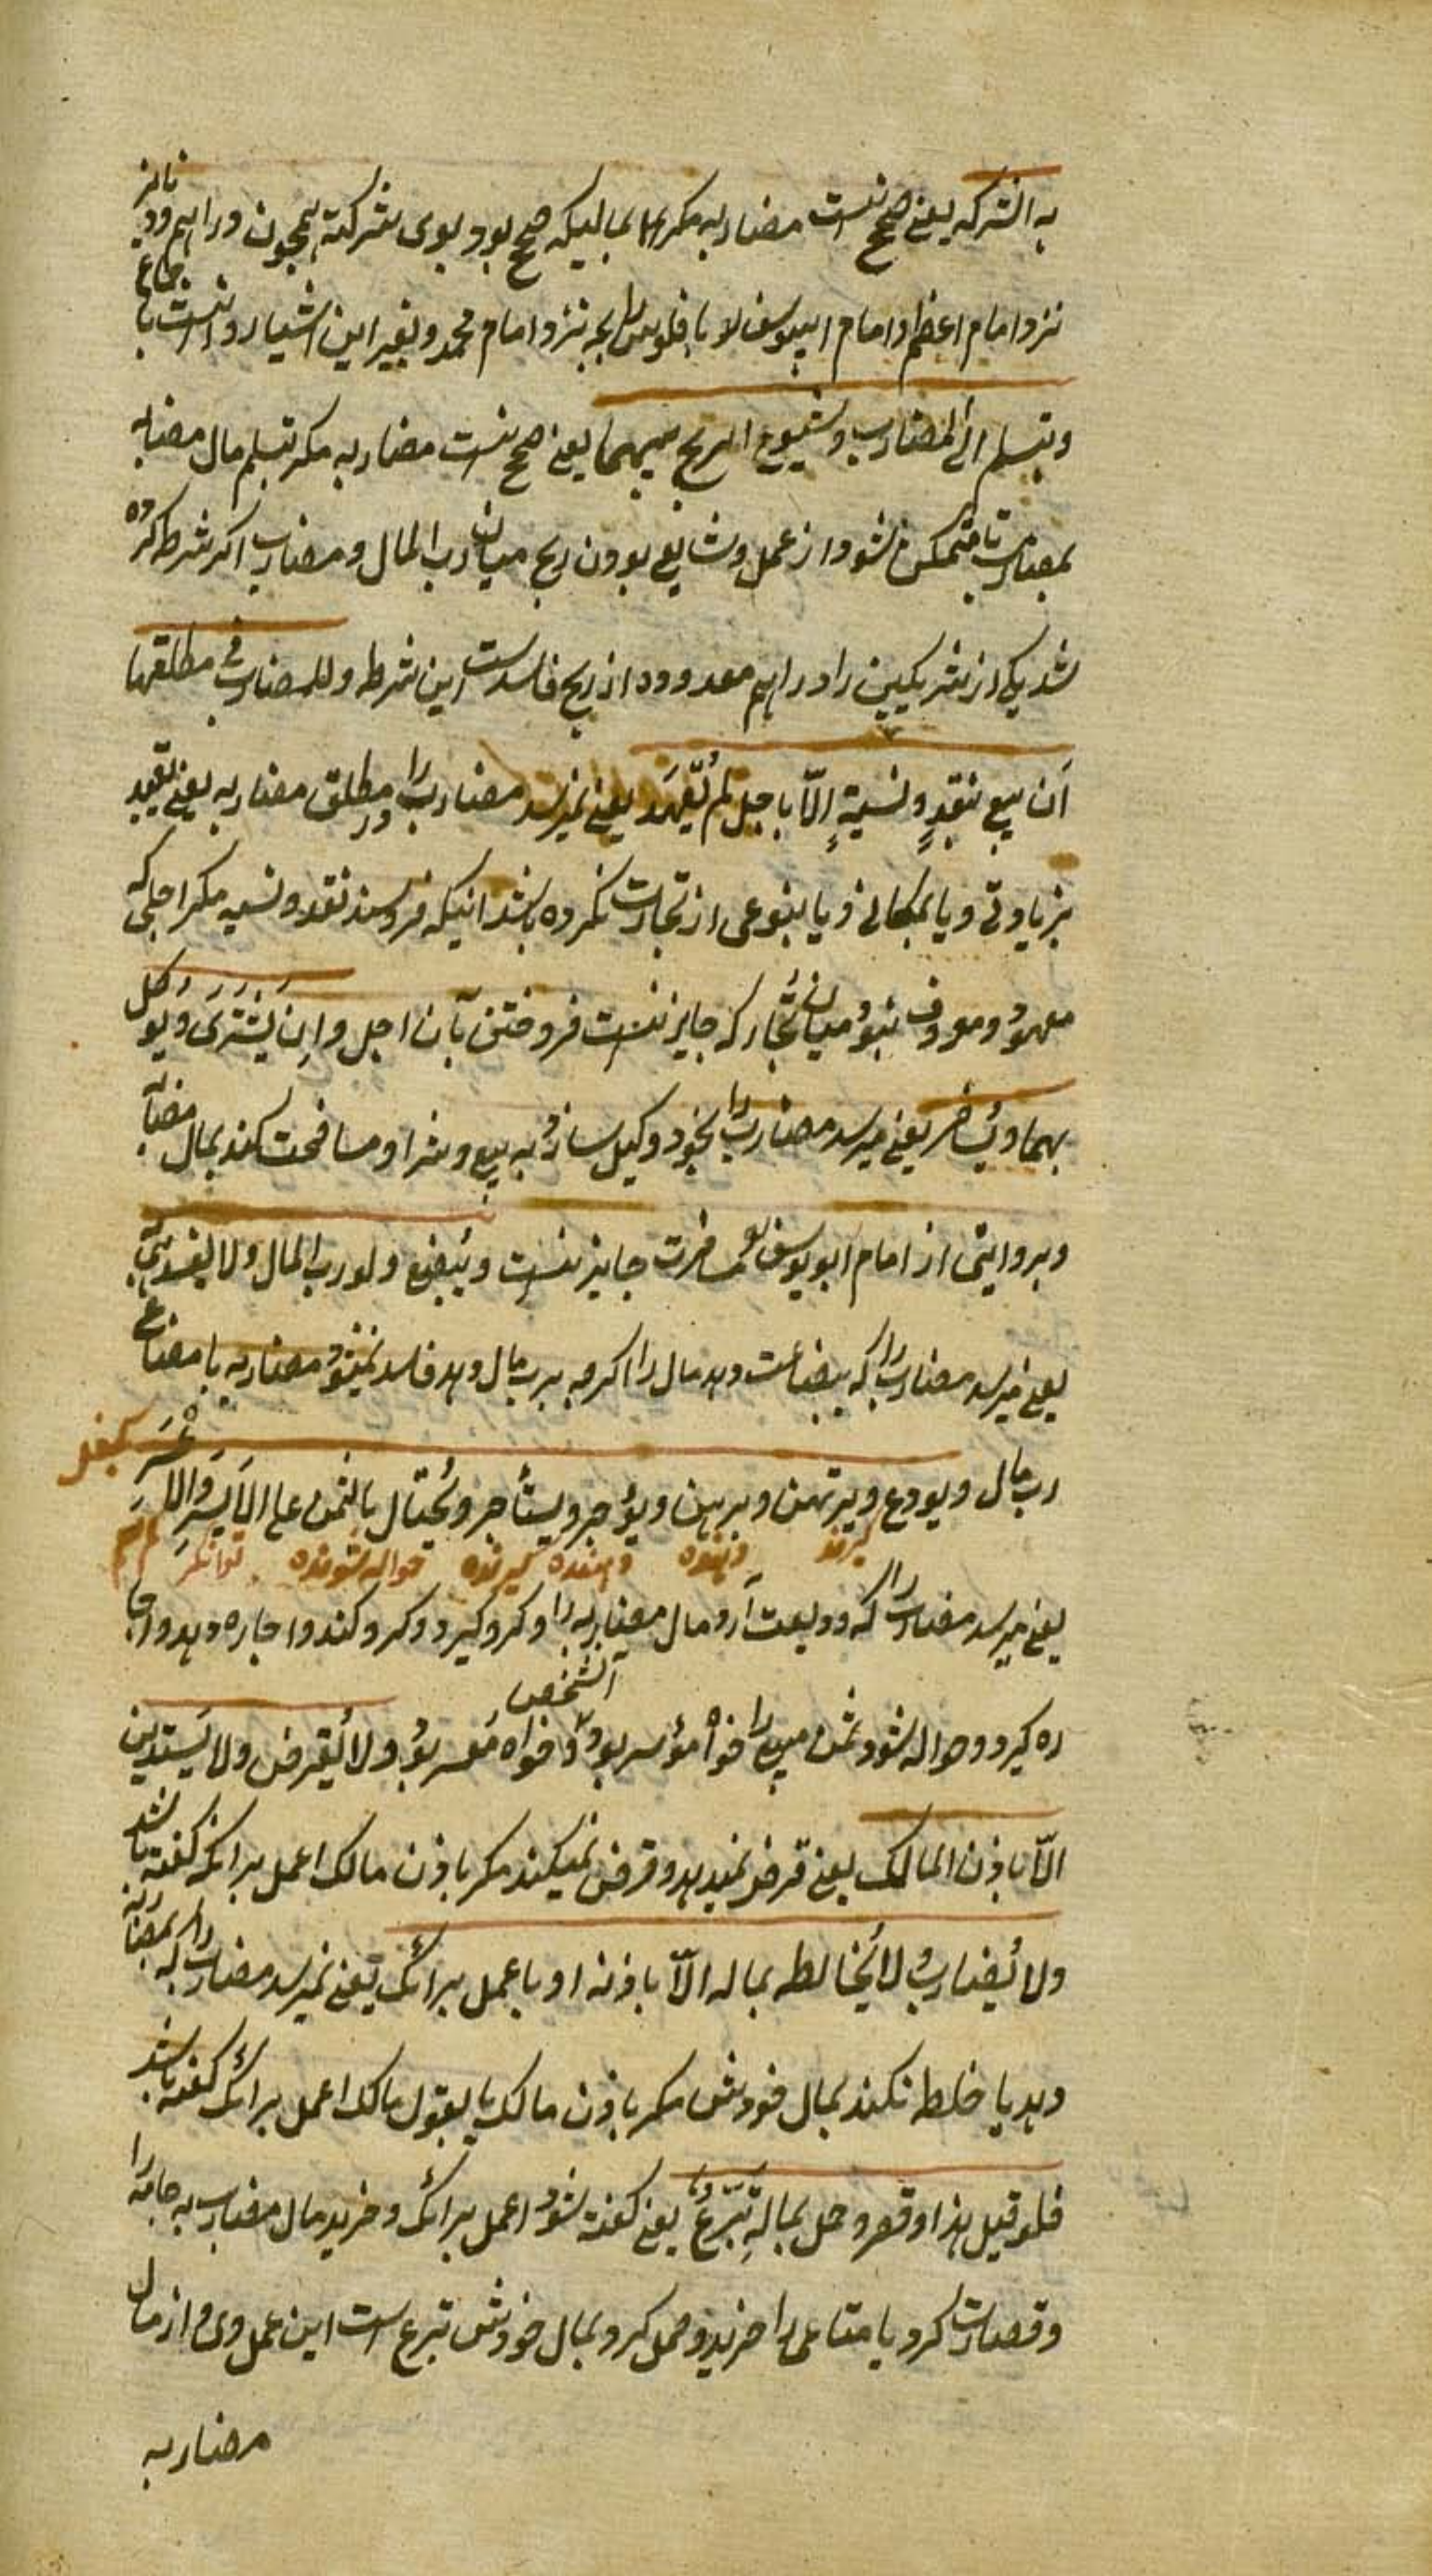 به الشركه یعنی صحیح نیست مضاربه مکر بمالیکه صحیح بود بوی شرکته همچون دراهم و دنانیر
نزد امام اعظم و امام ابییوسف لا بافلوس رایجه نزد امام محمد و بغیر این اشیا روا نیست باجماع
و بتسلیم الی المضارب و شیوع الربح بینهما یعنی صحیح نیست مضاربه مکر تسلیم مال مضاربه
بمضارب تا متمکن شود از عمل و شایع بودن ربح میان رب المال و مضارب اکر شرط کرده
شد یکی از شریکین را دراهم معدوده از ربح فاسد ست این شرط و للمضارب فی مطلقها
اَن یبیع بنقدٍ و نسیةٍ اِلّا باجلٍ لم یُعهَد یعنی میرسد مضارب را در مطلق مضاربه یعنی تقیید
بزیاوتی و یا بمکانی و یا بنوعی از تجارت نکرده باشد اینکه فروشند نقد و نسیه مکر اجلی که
معهود و معروف نبود میان تُجّار که جایز نیست فروختن بآن اجل و اِن یَشتَری و یوکل
بهما و یُسافر یعنی میرسد مضارب را بخود وکیل سازد به بیع و شرا و مسافحت کند بمال مضاربه
و بروایتی از امام ابو یوسف مسافرت جایز نیست و یُبضِع و لو رب المال و لا یفسد هی
یعنی میرسد مضارب را که ببضاعت دهد مال را اکرچه برب مال دهد فاسد نمیشود مضاربه با مضاعت
رب مال و یودع و یرتهن و یرهن و یؤجر و یستأجر و یُحتال بالثمن علی الاَیسر وَالاَعسَر
کیرنده دهنده کیرنده حواله شونده توانکر
یعنی میرسد مضارب را که ودیعت آرد مال مضاربه را و کرو کیرد و کرو کند و اجاره دهد و اجا
آنشخص
ره کیرد و حواله شود ثمن مبیع را خواه مؤسر بود و خواه مُعسر بود و لا یُقرض و لا یَستدین
الّا باذن المالک یعنی قرض نمیدهد و قرض نمیکند مکر باذن مالک اعمل برائک کفته باشد
و لا یُضارب و لا یُخالطه بماله الّا باذنه او باعمل برائک یعنی نمیرسد مضارب را که بمضاربه
دهد یا خلط نکند بمال خودش مکر باذن مالک یا بقول مالک اعمل برائک کفته باشد
فلو قیل هذا و قصر و حمل بمالِهٖ تَبَرَّعَ یعنی کفته شود اعمل برائک و خرید مال مضارب به جامه را
و قصارت کرد یا متاعی را خرید و حمل کرد بمال خودش تبرع است این عمل وی و از مال
مضاربه